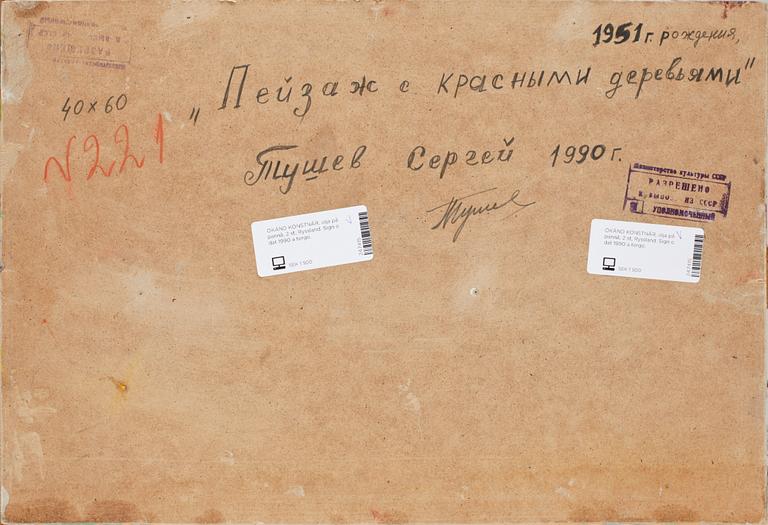 1951 г. рождения,
40 х 60
„Пейзаж с красными деревьями"
N 221
Тушев Сергей 1990 г.
Тушев
Министерство культуры СССР
РАЗРЕШЕНО
ИЗ СССР
УПОЛНОМОЧЕННЫЙ
OKÄND KONSTNÄR, olja på
pannå, 2 st, Ryssland. Sign o
dat 1990 a tergo.
SEK 1 500
OKÄND KONSTNÄR, olja på
pannå, 2 st, Ryssland. Sign o
dat 1990 a tergo.
SEK 1 500
РАЗРЕШЕНО